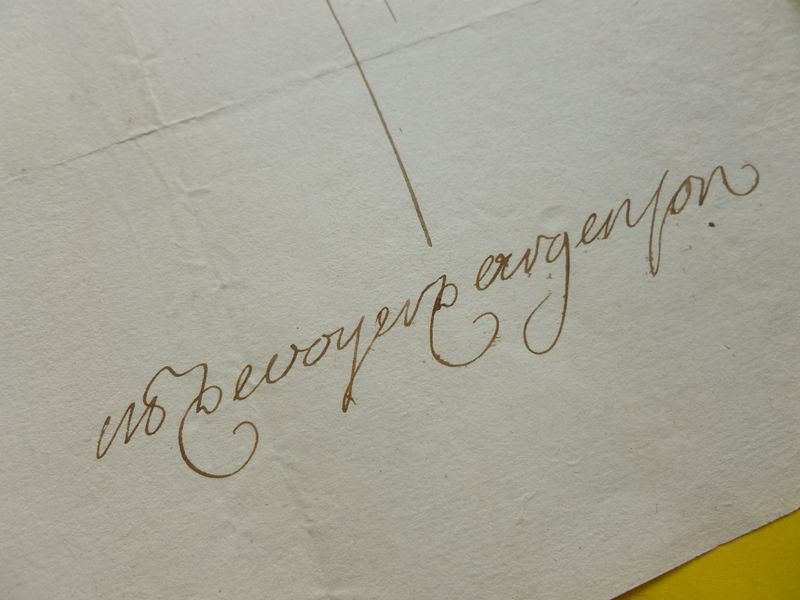 MR de voyer d argenson